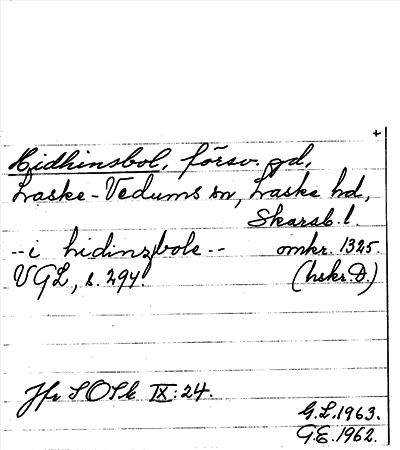 +
Hidhinsbol, försv. gd,
Laske-Vedums sn, Laske hd,
Skarab. l.
--i hidinzbole-- omkr. 1325.
VGL, s. 294. (hskr. D.)
Jfr SOSk IX:24.
G.L. 1963.
G.E. 1962.